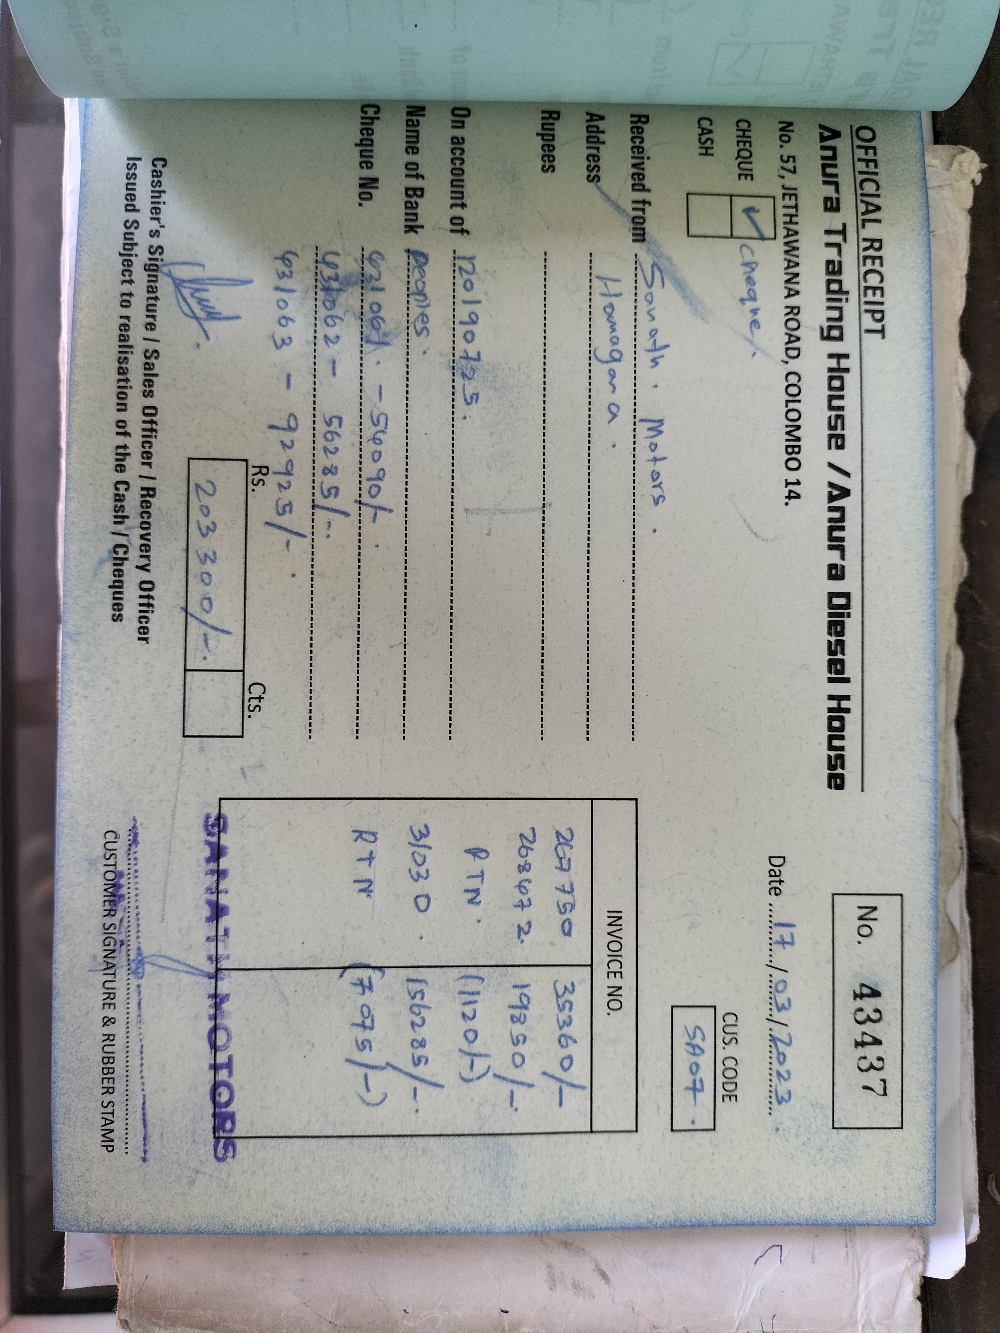 OFFICIAL RECEIPT
Anura Trading House / Anura Diesel House
No. 57, JETHAWANA ROAD, COLOMBO 14.
No. 43437
CHEQUE ✓ cheque
CASH
Date 17/03/2023
CUS. CODE
SA07.
Received from Sanath. Motors.
Address Homagama.
Rupees
On account of 120190725.
Name of Bank peoples.
Cheque No. 431061. - 54090/-.
431062 - 56285/-.
431063 - 92925/-.
Rs. Cts.
203300/-.
INVOICE NO.
267750 35360/-
268472. 19850/-
RTN. (1120/-)
31030. 156285/-.
RTN (7075/-)
SANATH MOTORS
Cashier's Signature / Sales Officer / Recovery Officer
Issued Subject to realisation of the Cash / Cheques
CUSTOMER SIGNATURE & RUBBER STAMP